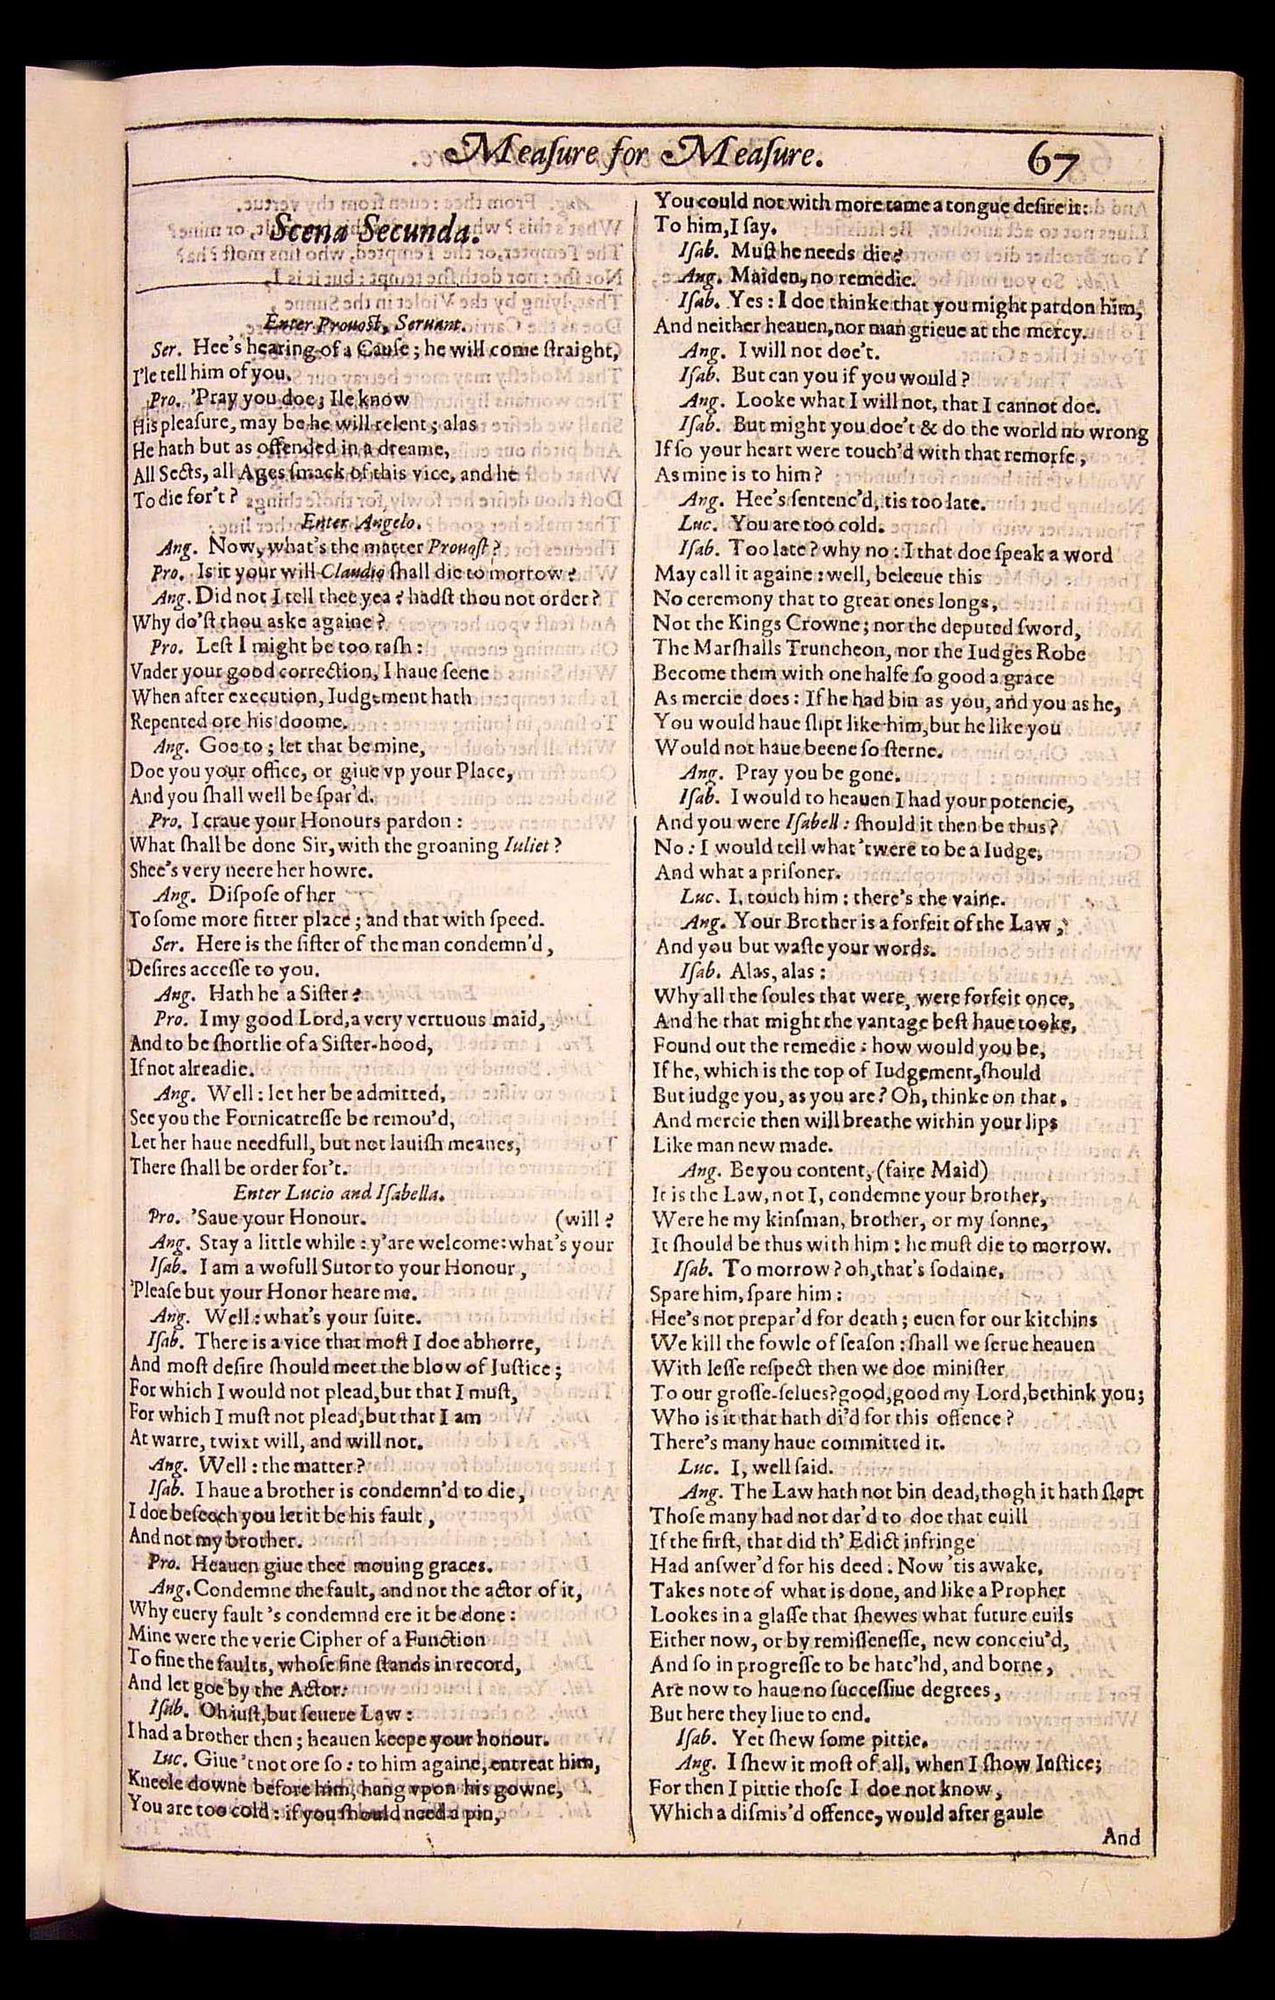 Meaſure for Meaſure.
67
Scena Secunda.
Enter Prouoſt, Seruant.
Ser. Hee's hearing of a Cauſe; he will come ſtraight,
I'le tell him of you.
Pro. 'Pray you doe; Ile know
His pleaſure, may be he will relent; alas
He hath but as offended in a dreame,
All Sects, all Ages ſmack of this vice, and he
To die for't?
Enter Angelo.
Ang. Now, what's the matter Prouoſt?
Pro. Is it your will Claudio ſhall die to morrow?
Ang. Did not I tell thee yea? hadſt thou not order?
Why do'ſt thou aske againe?
Pro. Leſt I might be too raſh:
Vnder your good correction, I haue ſeene
When after execution, Iudgement hath
Repented ore his doome.
Ang. Goe to; let that be mine,
Doe you your office, or giue vp your Place,
And you ſhall well be ſpar'd.
Pro. I craue your Honours pardon:
What ſhall be done Sir, with the groaning Iuliet?
Shee's very neere her howre.
Ang. Diſpoſe of her
To ſome more fitter place; and that with ſpeed.
Ser. Here is the ſiſter of the man condemn'd,
Deſires acceſſe to you.
Ang. Hath he a Siſter?
Pro. I my good Lord, a very vertuous maid,
And to be ſhortlie of a Siſter-hood,
If not alreadie.
Ang. Well: let her be admitted,
See you the Fornicatreſſe be remou'd,
Let her haue needfull, but not lauiſh meanes,
There ſhall be order for't.
Enter Lucio and Iſabella.
Pro. 'Saue your Honour. (will?
Ang. Stay a little while: y'are welcome: what's your
Iſab. I am a wofull Sutor to your Honour,
'Pleaſe but your Honor heare me.
Ang. Well: what's your ſuite.
Iſab. There is a vice that moſt I doe abhorre,
And moſt deſire ſhould meet the blow of Iuſtice;
For which I would not plead, but that I muſt,
For which I muſt not plead, but that I am
At warre, twixt will, and will not.
Ang. Well: the matter?
Iſab. I haue a brother is condemn'd to die,
I doe beſeech you let it be his fault,
And not my brother.
Pro. Heauen giue thee mouing graces.
Ang. Condemne the fault, and not the actor of it,
Why euery fault's condemnd ere it be done:
Mine were the verie Cipher of a Function
To fine the faults, whoſe fine ſtands in record,
And let goe by the Actor:
Iſab. Oh iuſt, but ſeuere Law:
I had a brother then; heauen keepe your honour.
Luc. Giue 't not ore ſo: to him againe, entreat him,
Kneele downe before him, hang vpon his gowne,
You are too cold: if you ſhould need a pin,
You could not with more tame a tongue deſire it:
To him, I ſay.
Iſab. Muſt he needs die?
Ang. Maiden, no remedie.
Iſab. Yes: I doe thinke that you might pardon him,
And neither heauen, nor man grieue at the mercy.
Ang. I will not doe't.
Iſab. But can you if you would?
Ang. Looke what I will not, that I cannot doe.
Iſab. But might you doe't & do the world no wrong
If ſo your heart were touch'd with that remorſe,
As mine is to him?
Ang. Hee's ſentenc'd, tis too late.
Luc. You are too cold.
Iſab. Too late? why no: I that doe ſpeak a word
May call it againe: well, beleeue this
No ceremony that to great ones longs,
Not the Kings Crowne; nor the deputed ſword,
The Marſhalls Truncheon, nor the Iudges Robe
Become them with one halfe ſo good a grace
As mercie does: If he had bin as you, and you as he,
You would haue ſlipt like him, but he like you
Would not haue beene ſo ſterne.
Ang. Pray you be gone.
Iſab. I would to heauen I had your potencie,
And you were Iſabell: ſhould it then be thus?
No: I would tell what 'twere to be a Iudge,
And what a priſoner.
Luc. I, touch him: there's the vaine.
Ang. Your Brother is a forfeit of the Law,
And you but waſte your words.
Iſab. Alas, alas:
Why all the ſoules that were, were forfeit once,
And he that might the vantage beſt haue tooke,
Found out the remedie: how would you be,
If he, which is the top of Iudgement, ſhould
But iudge you, as you are? Oh, thinke on that,
And mercie then will breathe within your lips
Like man new made.
Ang. Be you content, (faire Maid)
It is the Law, not I, condemne your brother,
Were he my kinſman, brother, or my ſonne,
It ſhould be thus with him: he muſt die to morrow.
Iſab. To morrow? oh, that's ſodaine,
Spare him, ſpare him:
Hee's not prepar'd for death; euen for our kitchins
We kill the fowle of ſeaſon: ſhall we ſerue heauen
With leſſe reſpect then we doe miniſter
To our groſſe-ſelues? good, good my Lord, bethink you;
Who is it that hath di'd for this offence?
There's many haue committed it.
Luc. I, well ſaid.
Ang. The Law hath not bin dead, thogh it hath ſlept
Thoſe many had not dar'd to doe that euill
If the firſt, that did th' Edict infringe
Had anſwer'd for his deed. Now 'tis awake,
Takes note of what is done, and like a Prophet
Lookes in a glaſſe that ſhewes what future euils
Either now, or by remiſſeneſſe, new conceiu'd,
And ſo in progreſſe to be hatc'hd, and borne,
Are now to haue no ſucceſſiue degrees,
But here they liue to end.
Iſab. Yet ſhew ſome pittie.
Ang. I ſhew it moſt of all, when I ſhow Iuſtice;
For then I pittie thoſe I doe not know,
Which a diſmis'd offence, would after gaule
And